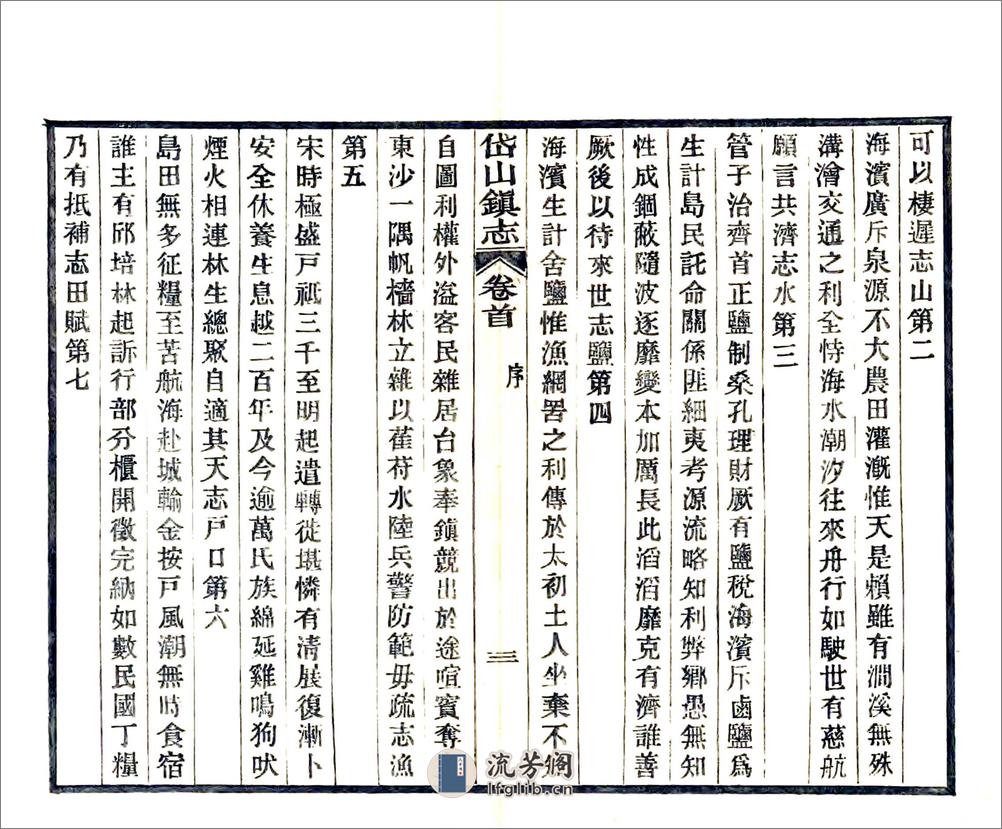 可以棲遲志山第二
海濱廣斥泉源不大農田灌漑惟天是賴雖有澗溪無殊
溝澮交通之利全恃海水潮汐往來舟行如駛世有慈航
願言共濟志水第三
管子治齊首正鹽制桑孔理財厥有鹽稅海濱斥鹵鹽爲
生計島民託命關係匪細夷考源流略知利弊鄉愚無知
性成錮蔽隨波逐靡變本加厲長此滔滔靡克有濟誰善
厥後以待來世志鹽第四
海濱生計舍鹽惟漁網罟之利傳於太初土人坐棄不
岱山鎮志 卷首 序 三
自圖利權外溢客民雜居台象奉鎮競出於途喧賓奪
東沙一隅帆檣林立雜以萑苻水陸兵警防範毋疏志漁
第五
宋時極盛戸祗三千至明起遣轉徙堪憐有淸展復漸卜
安全休養生息越二百年及今逾萬氏族綿延雞鳴狗吠
煙火相連林生總聚自適其天志戸口第六
島田無多征糧至苦航海赴城輸金按戸風潮無時食宿
誰主有邱培林起訴行部分櫃開徵完納如數民國丁糧
乃有抵補志田賦第七
流芳阁
lfglib.cn